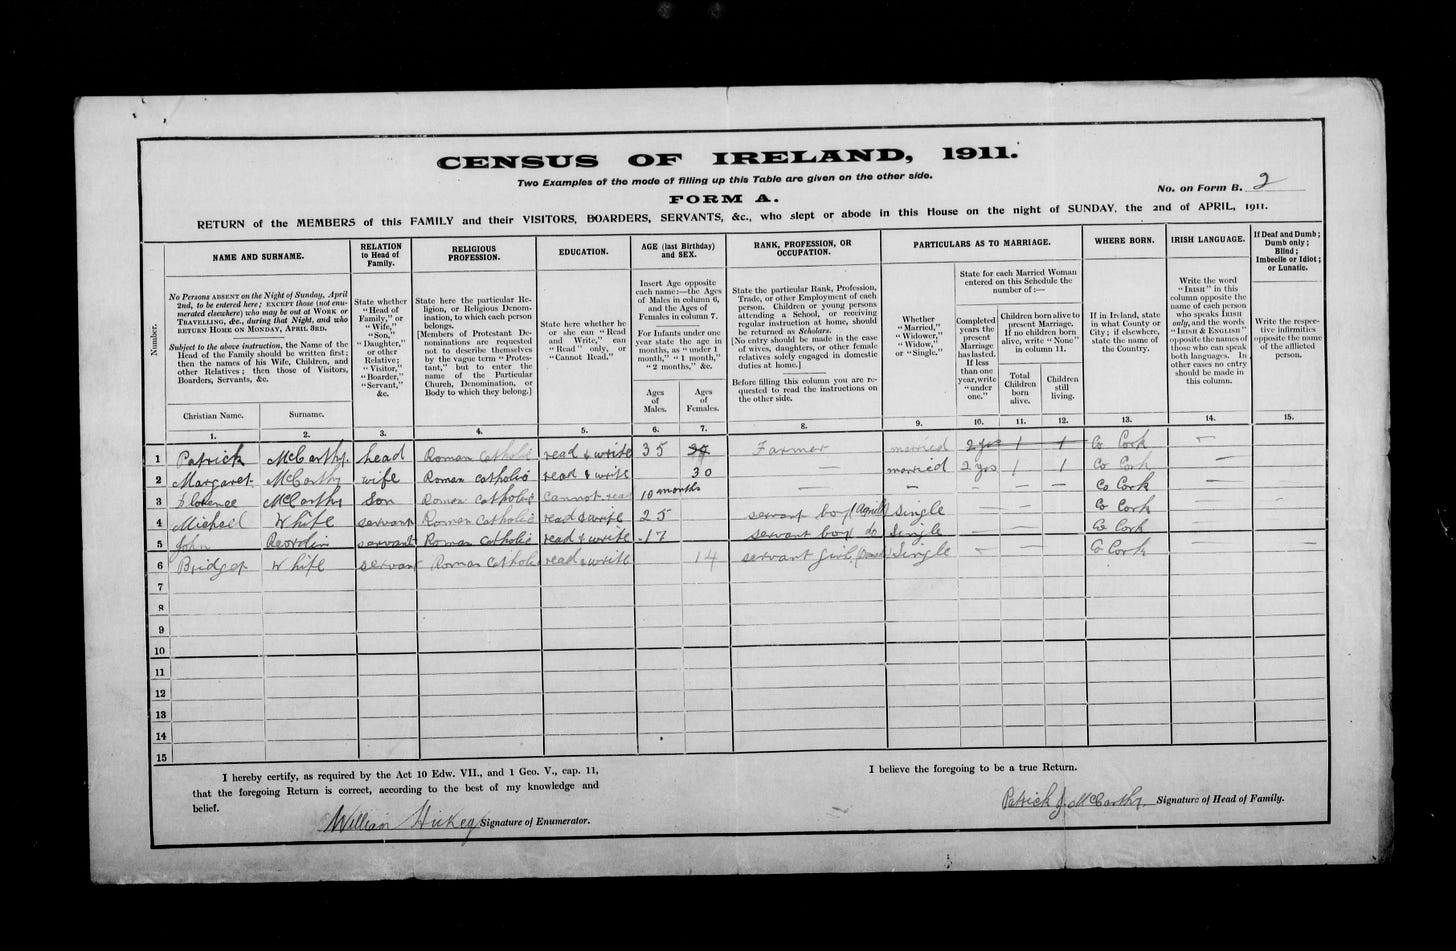 CENSUS OF IRELAND, 1911.
Two Examples of the mode of filling up this Table are given on the other side.
FORM A.
No. on Form B. 2
RETURN of the MEMBERS of this FAMILY and their VISITORS, BOARDERS, SERVANTS, &c., who slept or abode in this House on the night of SUNDAY, the 2nd of APRIL, 1911.
Number.
NAME AND SURNAME.
No Persons ABSENT on the Night of Sunday, April
2nd, to be entered here; EXCEPT those (not enu-
merated elsewhere) who may be out at WORK or
TRAVELLING, &c., during that Night, and who
RETURN HOME ON MONDAY, APRIL 3RD.
Subject to the above instruction, the Name of the
Head of the Family should be written first;
then the names of his Wife, Children, and
other Relatives; then those of Visitors,
Boarders, Servants, &c.
Christian Name.
Surname.
RELATION
to Head of
Family.
State whether
"Head of
Family," or
"Wife,"
"Son,"
"Daughter,"
or other
Relative;
"Visitor,"
"Boarder,"
"Servant,"
&c.
RELIGIOUS
PROFESSION.
State here the particular Re-
ligion, or Religious Denom-
ination, to which each person
belongs.
[Members of Protestant De-
nominations are requested
not to describe themselves
by the vague term "Protes-
tant," but to enter the
name of the Particular
Church, Denomination, or
Body to which they belong.]
EDUCATION.
State here whether he
or she can "Read
and Write," can
"Read" only, or
"Cannot Read."
AGE (last Birthday)
and SEX.
Insert Age opposite
each name:—the Ages
of Males in column 6,
and the Ages of
Females in column 7.
For Infants under one
year state the age in
months, as "under 1
month," "1 month,"
"2 months," &c.
Ages
of
Males.
Ages
of
Females.
RANK, PROFESSION, OR
OCCUPATION.
State the particular Rank, Profession,
Trade, or other Employment of each
person. Children or young persons
attending a School, or receiving
regular instruction at home, should
be returned as Scholars.
[No entry should be made in the case
of wives, daughters, or other female
relatives solely engaged in domestic
duties at home.]
Before filling this column you are re-
quested to read the instructions on
the other side.
PARTICULARS AS TO MARRIAGE.
Whether
"Married,"
"Widower,"
"Widow,"
or "Single."
State for each Married Woman
entered on this Schedule the
number of:—
Completed
years the
present
Marriage
has lasted.
If less
than one
year, write
"under
one."
Children born alive to
present Marriage.
If no children born
alive, write "None"
in column 11.
Total
Children
born
alive.
Children
still
living.
WHERE BORN.
If in Ireland, state
in what County or
City; if elsewhere,
state the name of
the Country.
IRISH LANGUAGE.
Write the word
"IRISH" in this
column opposite the
name of each person
who speaks IRISH
only, and the words
"IRISH & ENGLISH"
opposite the names of
those who can speak
both languages. In
other cases no entry
should be made in
this column.
If Deaf and Dumb;
Dumb only;
Blind;
Imbecile or Idiot;
or Lunatic.
Write the respec-
tive infirmities
opposite the name
of the afflicted
person.
1. 2. 3. 4. 5. 6. 7. 8. 9. 10. 11. 12. 13. 14. 15.
1 Patrick McCarthy head Roman Catholic read & write 35 Farmer married 2 yrs 1 1 Co Cork —
2 Margaret McCarthy wife Roman catholic read & write 30 — married 2 yrs 1 1 Co Cork —
3 Florence McCarthy Son Roman Catholic Cannot read 10 months — — — — — Co Cork —
4 Michael White servant Roman Catholic read & write 25 servant boy (Agricl) Single — — Co Cork —
5 John Reordin servant Roman Catholic read & write 17 servant boy do Single — — Co Cork —
6 Bridget White servant Roman Catholic read & write 14 servant girl (Domst) Single — — Co Cork —
7
8
9
10
11
12
13
14
15
I hereby certify, as required by the Act 10 Edw. VII., and 1 Geo. V., cap. 11,
that the foregoing Return is correct, according to the best of my knowledge and
belief.
William Hickey Signature of Enumerator.
I believe the foregoing to be a true Return.
Patrick J. McCarthy Signature of Head of Family.